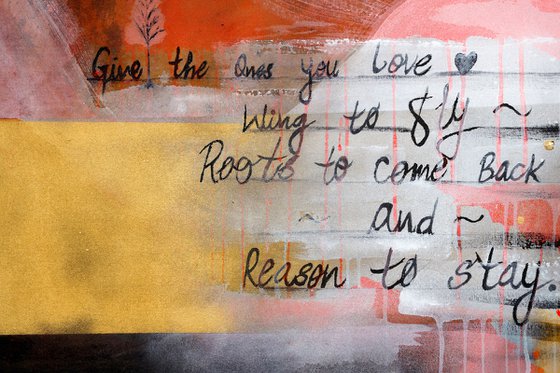 Give the Ones you Love ♥
Wing to fly ~
Roots to come Back
~ and ~
Reason to stay.